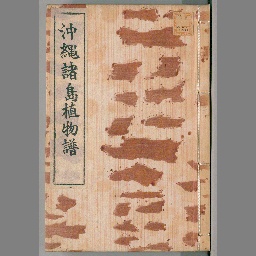 沖縄諸島植物譜